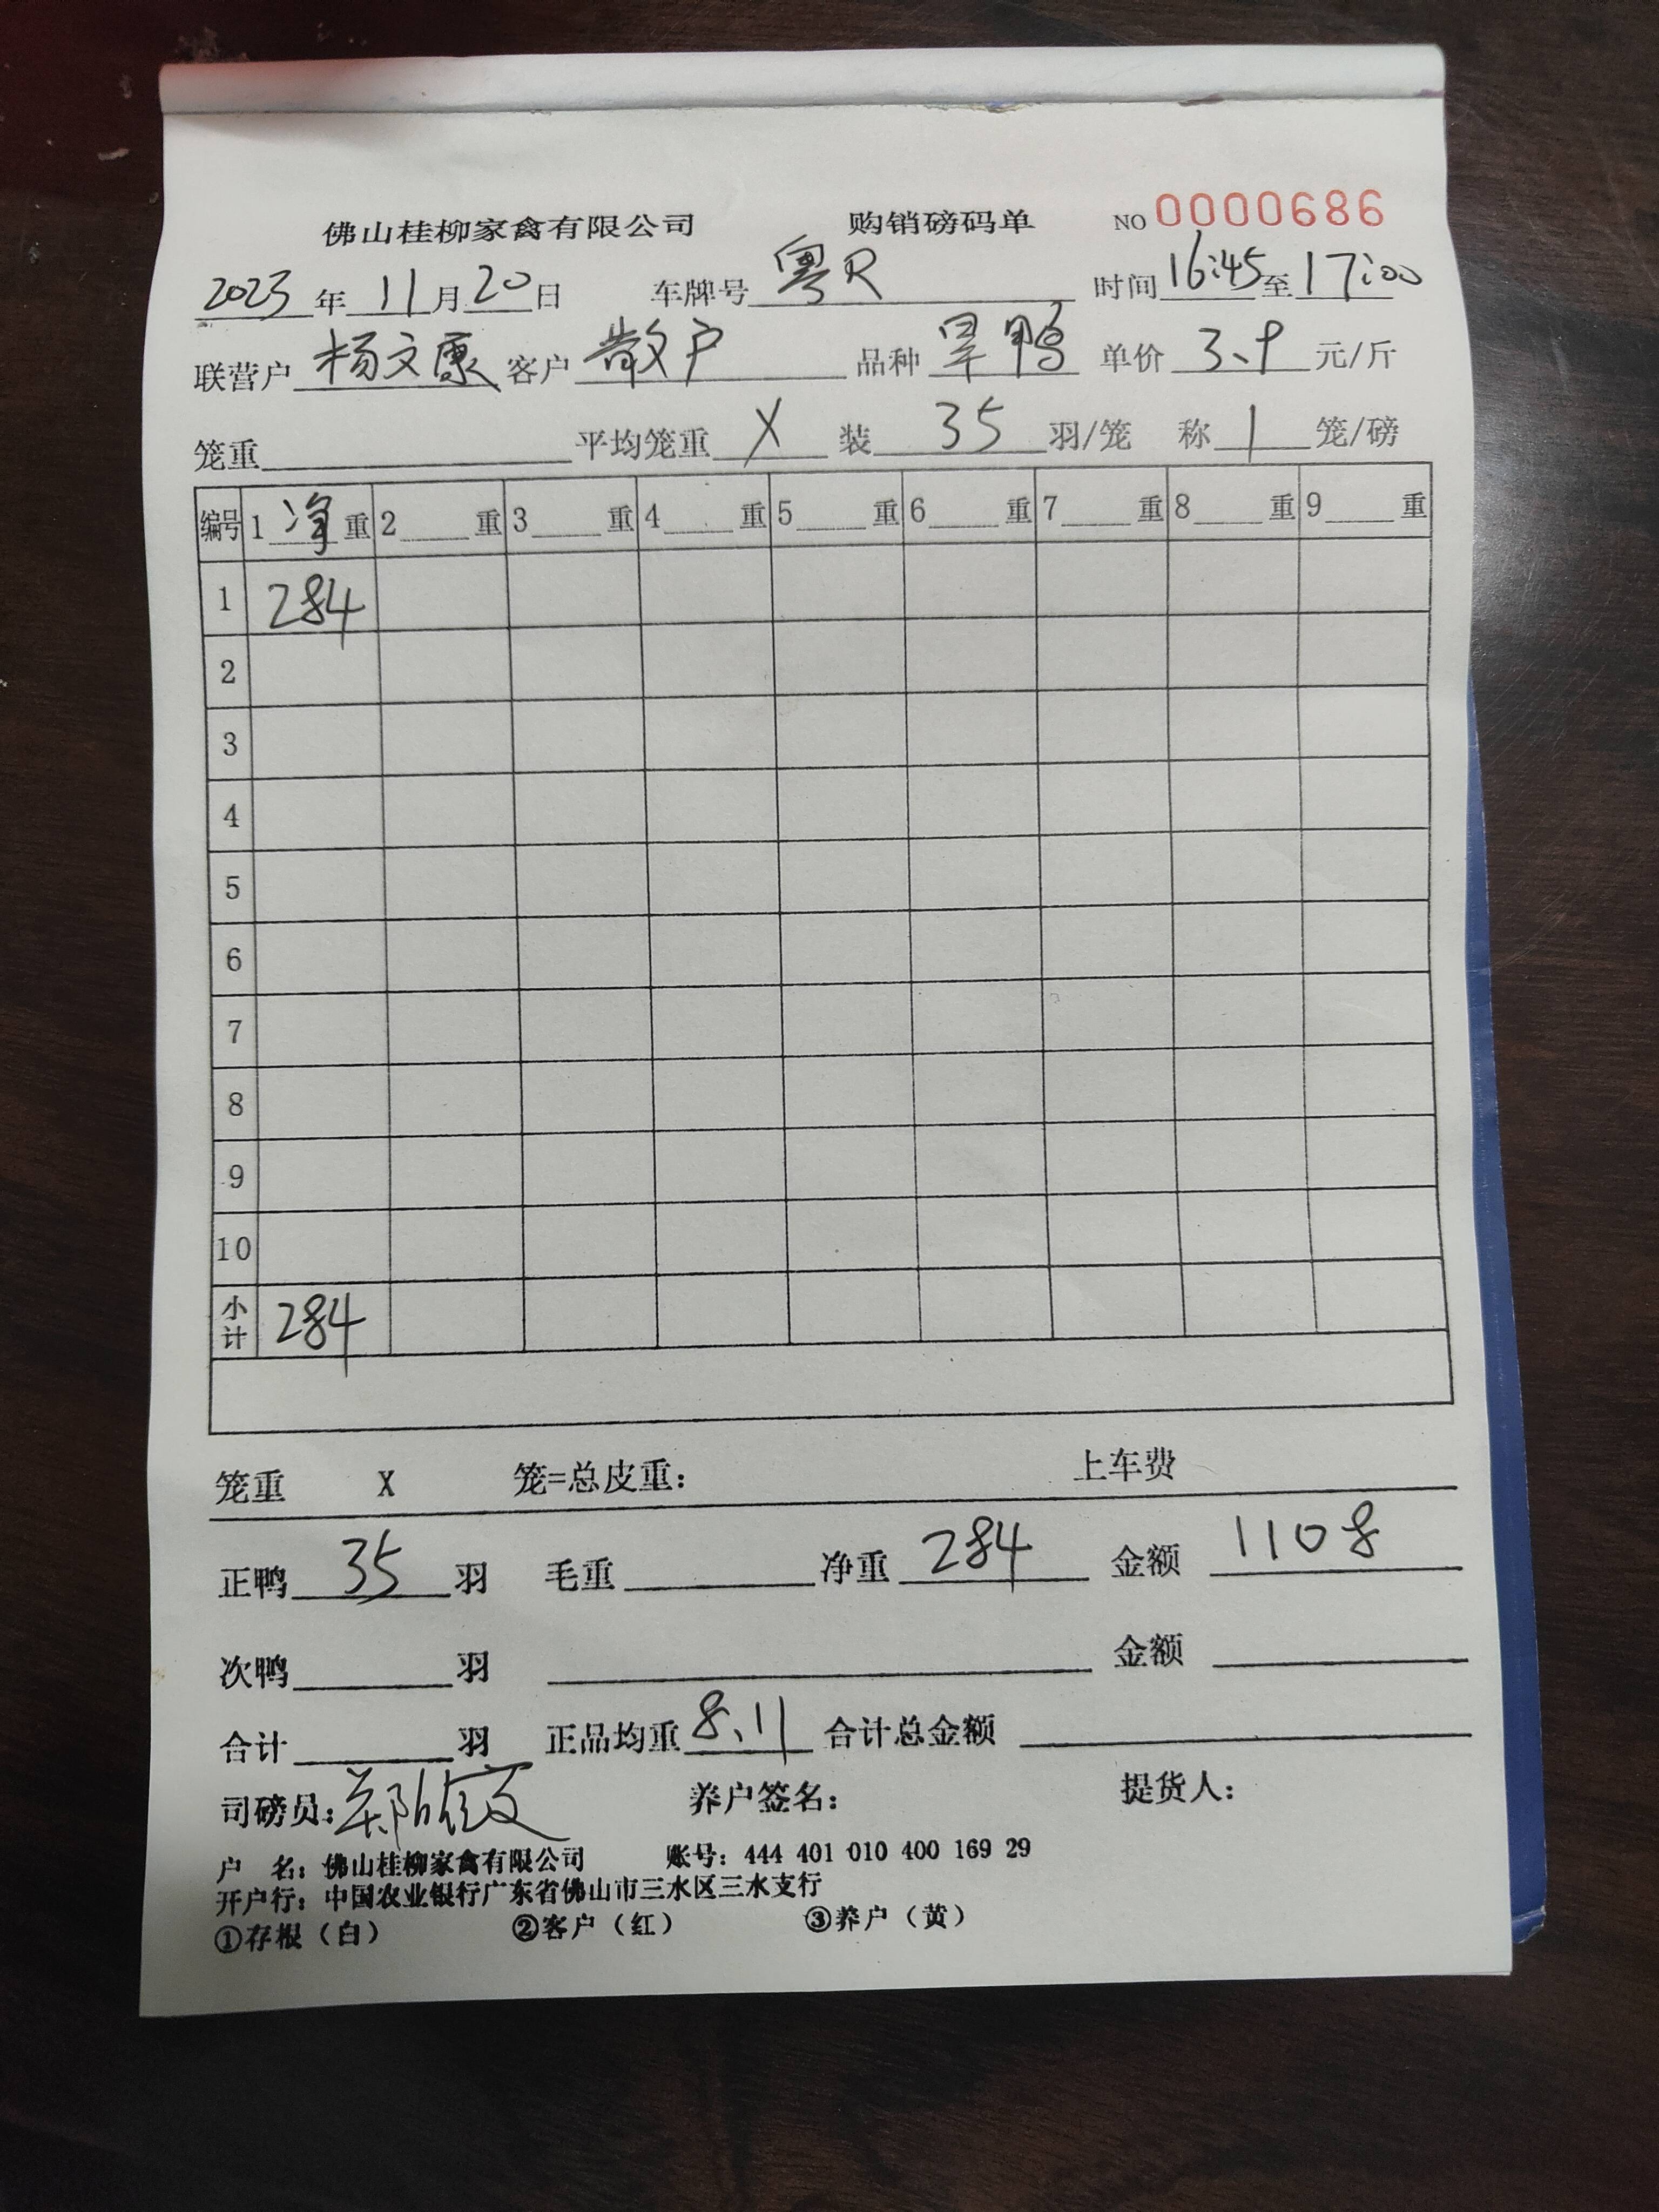 佛山桂柳家禽有限公司 购销磅码单 NO 0000686
2023年 11月20日 车牌号 粤R 时间16:45至17:00
联营户 杨文康 客户 散户 品种 旱鸭 单价 3、9 元/斤
笼重 平均笼重 X 装 35 羽/笼 称 1 笼/磅
编号 1 净 重 2 重 3 重 4 重 5 重 6 重 7 重 8 重 9 重
1 284
2
3
4
5
6
7
8
9
10
小计 284
笼重 X 笼=总皮重: 上车费
正鸭 35 羽 毛重 净重 284 金额 1108
次鸭 羽 金额
合计 羽 正品均重 8、11 合计总金额
司磅员: 养户签名: 提货人:
户 名: 佛山桂柳家禽有限公司 账号: 444 401 010 400 169 29
开户行: 中国农业银行广东省佛山市三水区三水支行
①存根（白） ②客户（红） ③养户（黄）